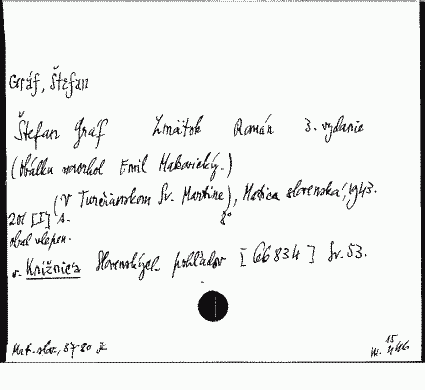 Gráf, Štefan
Štefan Gráf Zmätok Román 3. vydanie
(Obálku navrhol Emil Makovický.)
(V Turčianskom Sv. Martine), Matica slovenská, 1943.
201 [I] s. 8°
obal vlepen.
v- Knižnica Slovenských pohľadov [66834] Sv. 53.
Mat. slov., 37-80 K
15
m. 446